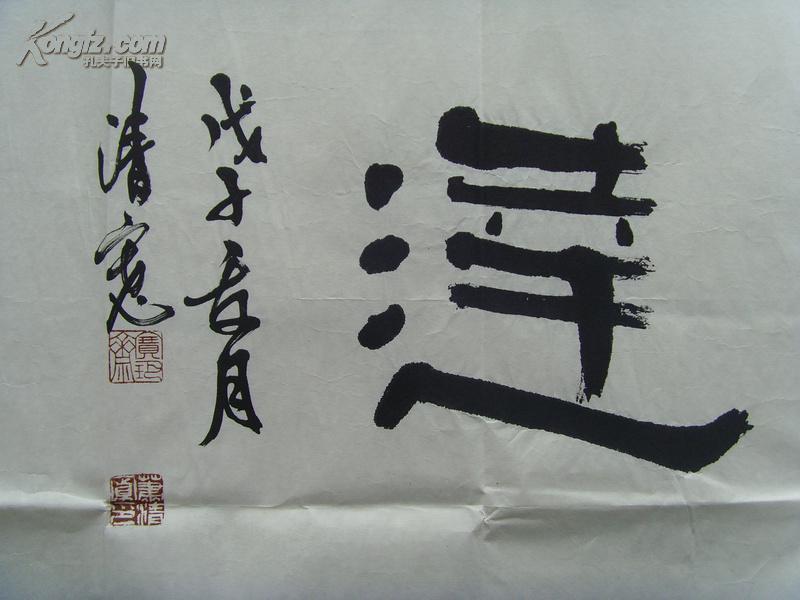 Kongfz.com
孔夫子旧书网
達
戊子春月
清寬